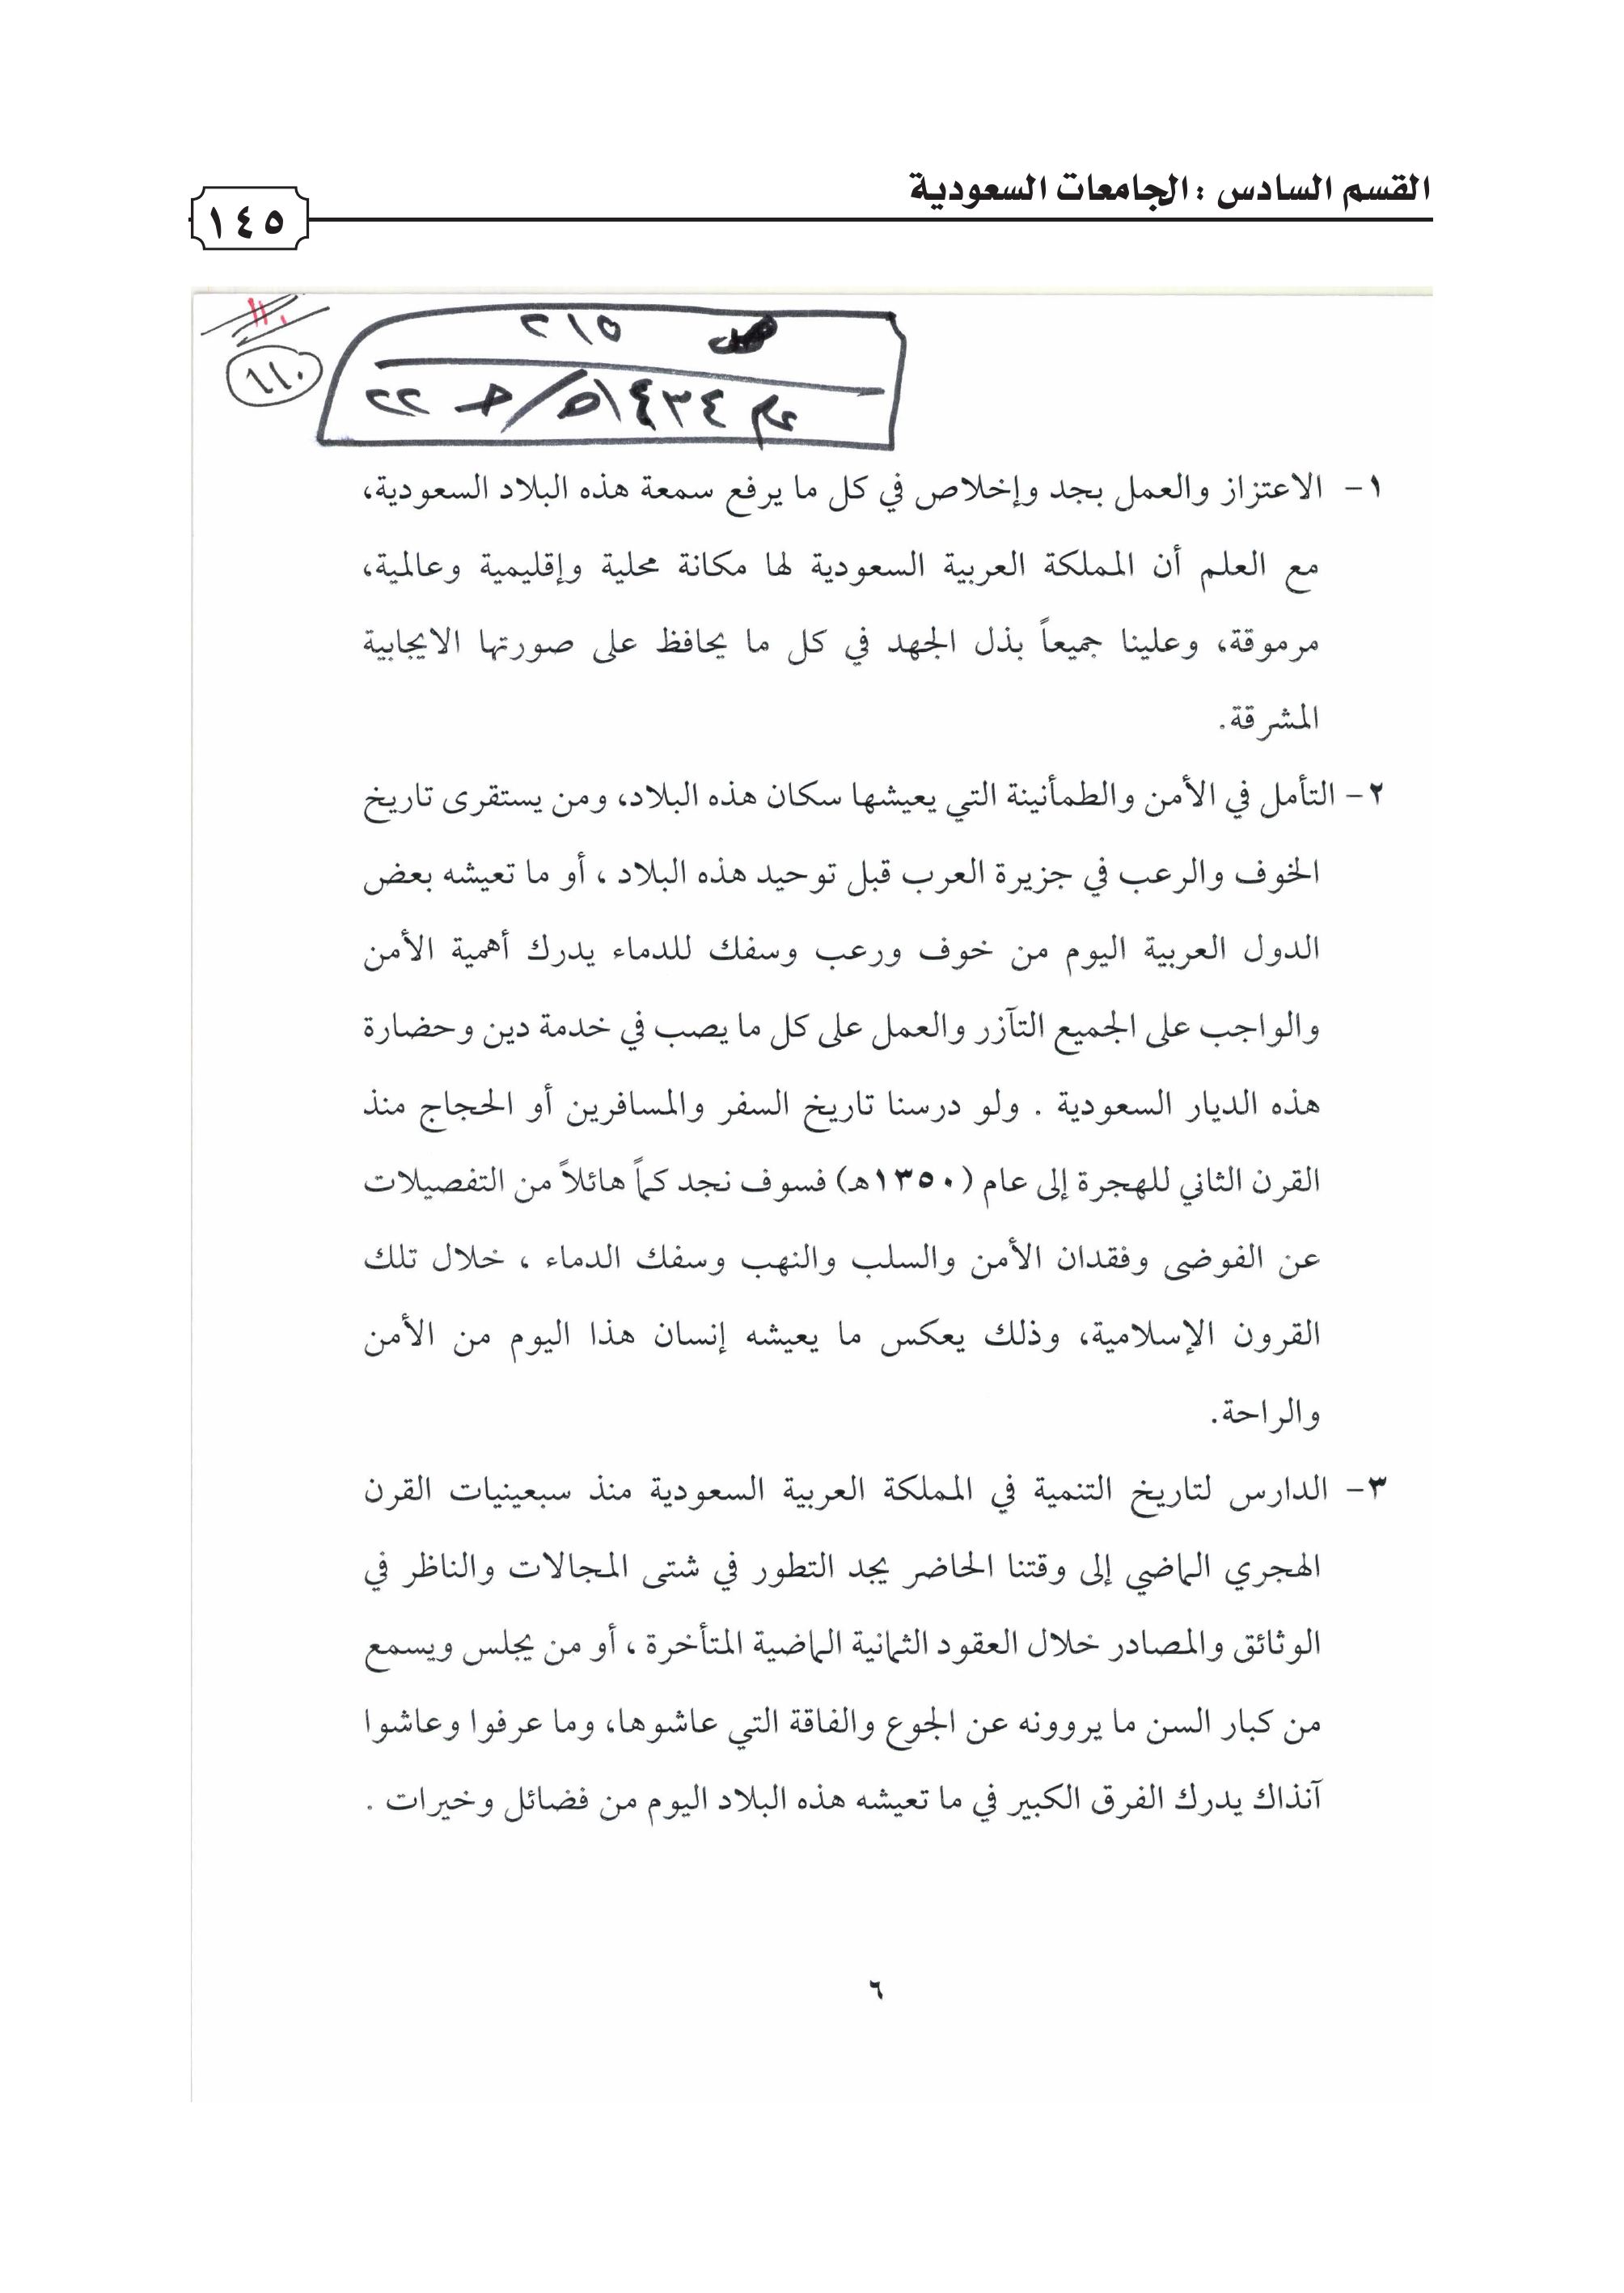 القسم السادس : الجامعات السعودية
١٤٥
٢١٥
عام ١٤٣٤هـ / حـ ٢٢
١- الاعتزاز والعمل بجد وإخلاص في كل ما يرفع سمعة هذه البلاد السعودية،
مع العلم أن المملكة العربية السعودية لها مكانة محلية وإقليمية وعالمية،
مرموقة، وعلينا جميعاً بذل الجهد في كل ما يحافظ على صورتها الايجابية
المشرقة.
٢- التأمل في الأمن والطمأنينة التي يعيشها سكان هذه البلاد، ومن يستقرى تاريخ
الخوف والرعب في جزيرة العرب قبل توحيد هذه البلاد ، أو ما تعيشه بعض
الدول العربية اليوم من خوف ورعب وسفك للدماء يدرك أهمية الأمن
والواجب على الجميع التآزر والعمل على كل ما يصب في خدمة دين وحضارة
هذه الديار السعودية . ولو درسنا تاريخ السفر والمسافرين أو الحجاج منذ
القرن الثاني للهجرة إلى عام (١٣٥٠هـ) فسوف نجد كماً هائلاً من التفصيلات
عن الفوضى وفقدان الأمن والسلب والنهب وسفك الدماء ، خلال تلك
القرون الإسلامية، وذلك يعكس ما يعيشه إنسان هذا اليوم من الأمن
والراحة.
٣- الدارس لتاريخ التنمية في المملكة العربية السعودية منذ سبعينيات القرن
الهجري الماضي إلى وقتنا الحاضر يجد التطور في شتى المجالات والناظر في
الوثائق والمصادر خلال العقود الثمانية الماضية المتأخرة ، أو من يجلس ويسمع
من كبار السن ما يروونه عن الجوع والفاقة التي عاشوها، وما عرفوا وعاشوا
آنذاك يدرك الفرق الكبير في ما تعيشه هذه البلاد اليوم من فضائل وخيرات .
٦